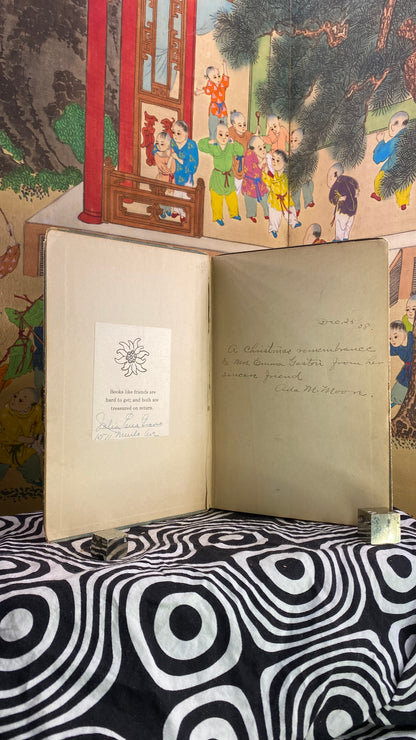 Books like friends are
hard to get; and both are
treasured on return.
Julia
Ave
Dec. 25
08.
A Christmas remembrance
to Mrs Emma from her
sincere friend
Ada M. Moore.